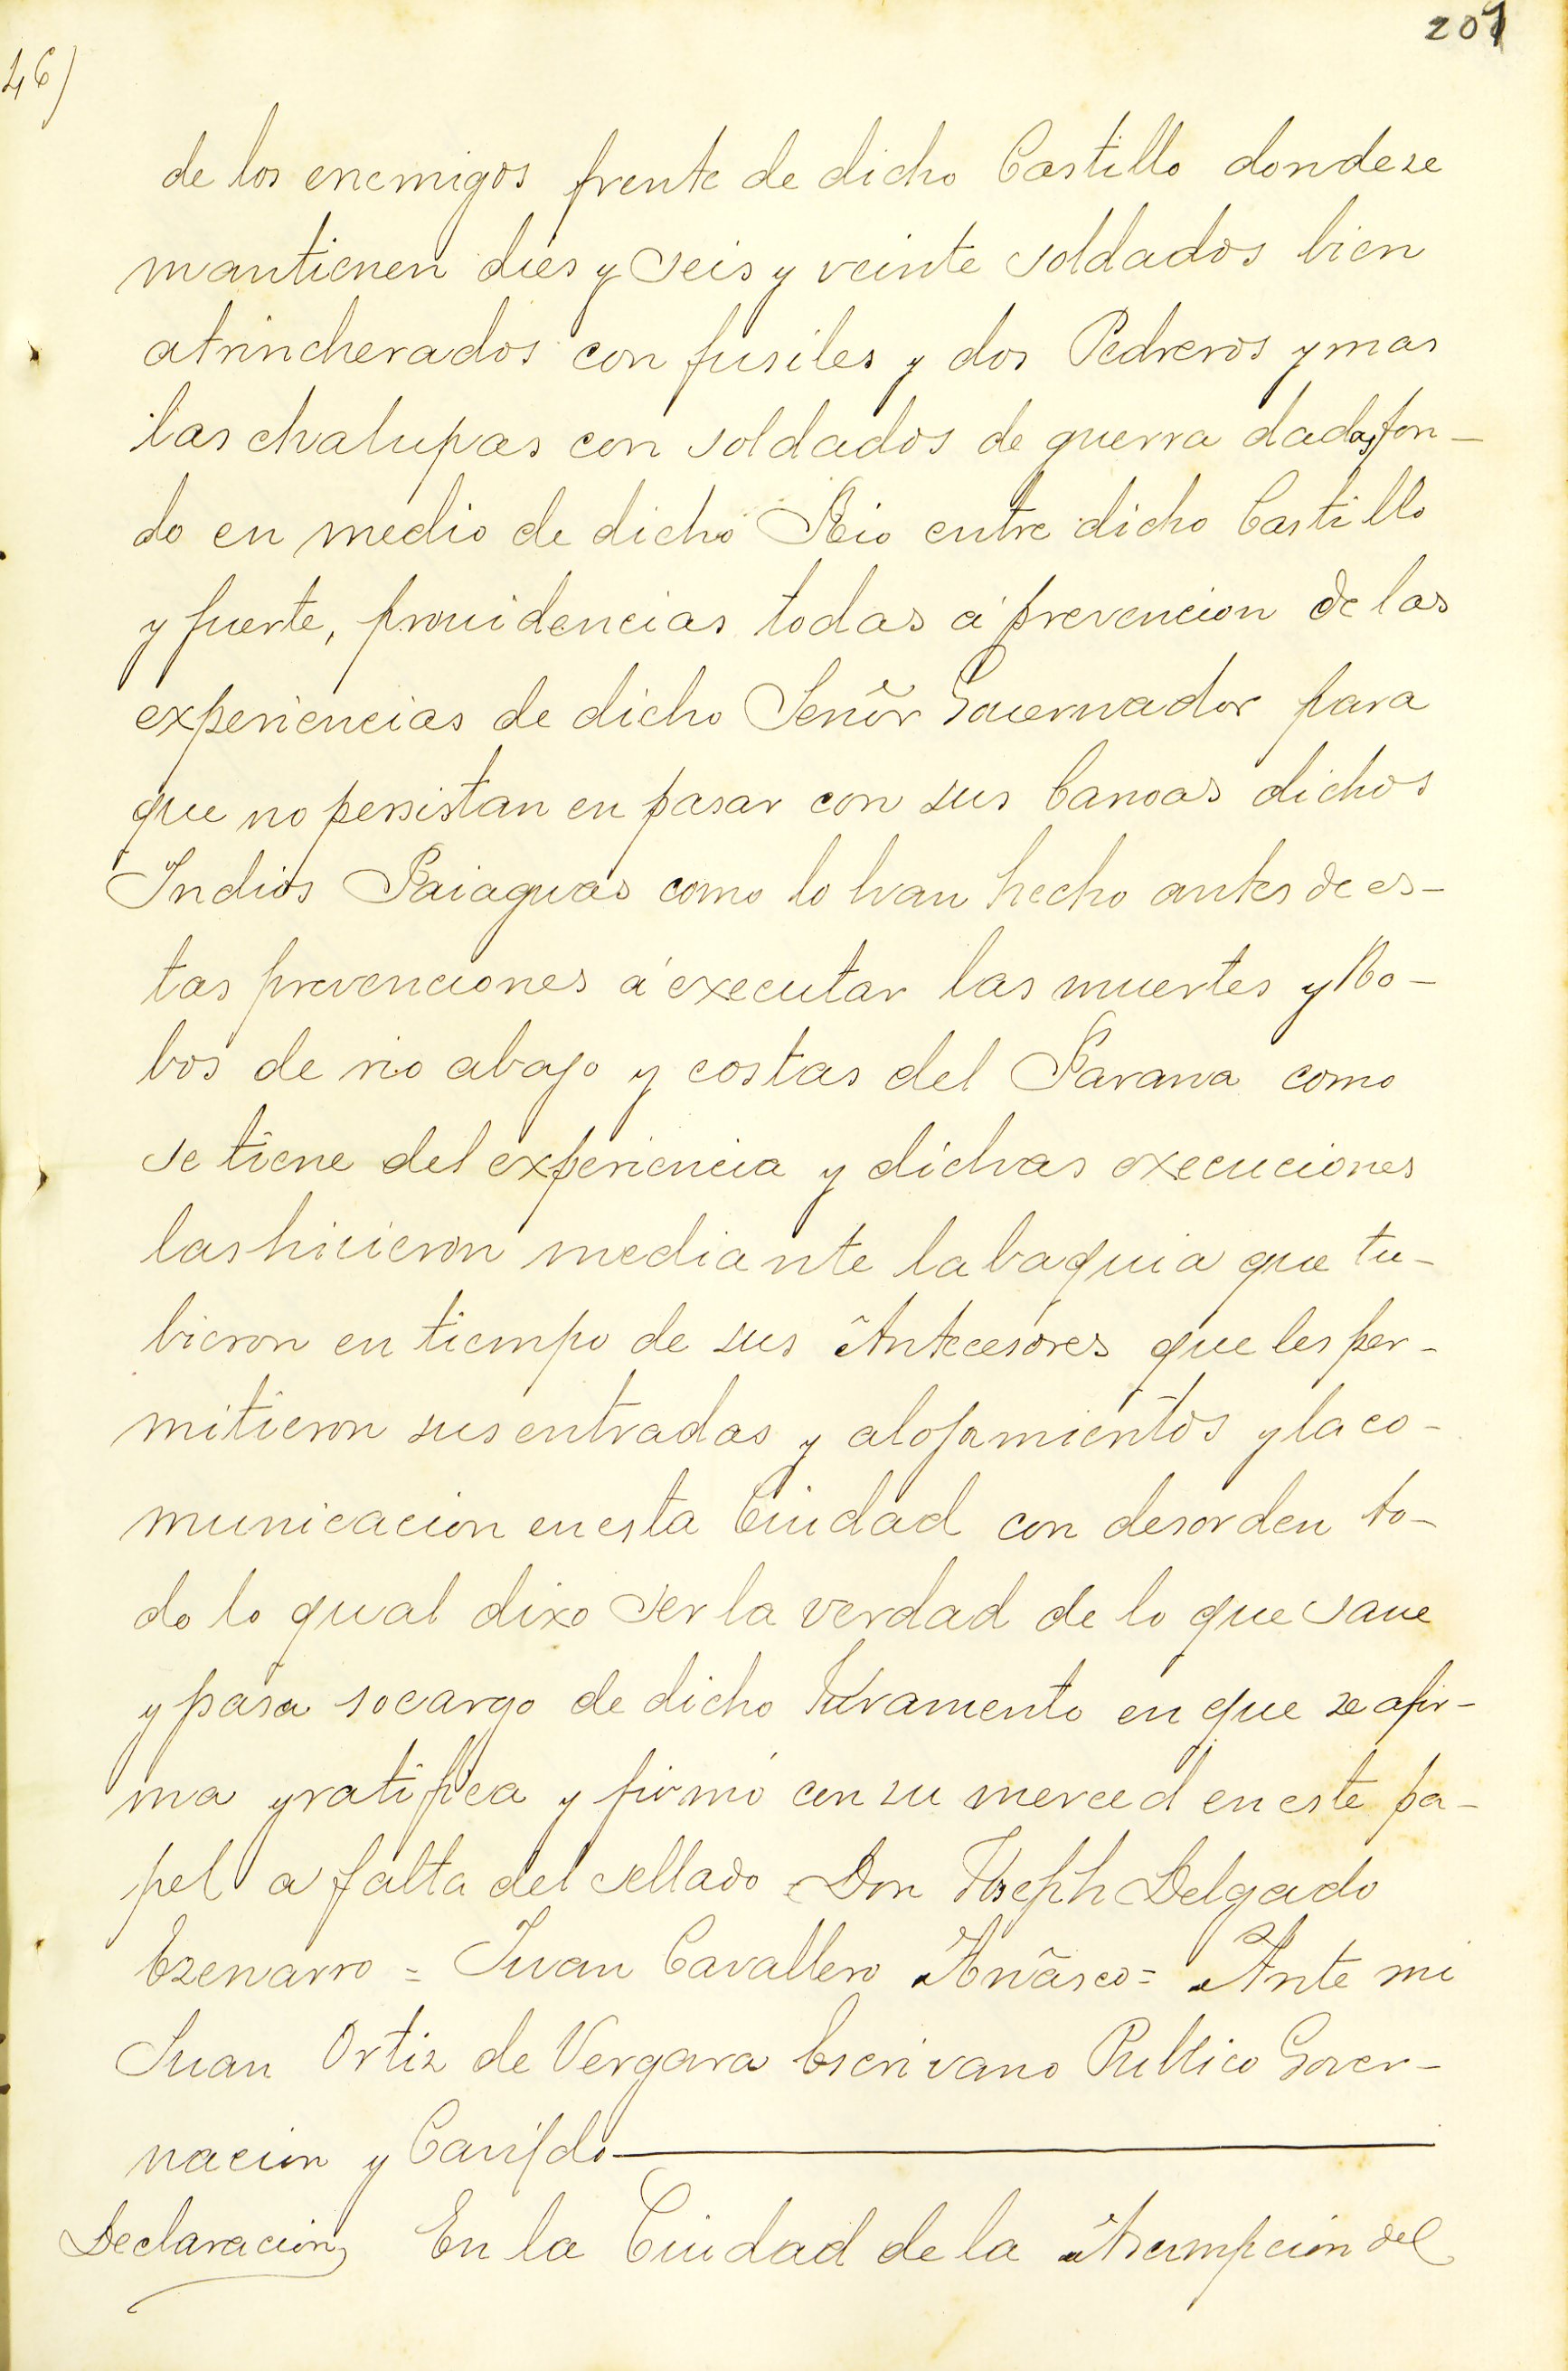 207
46)
de los enemigos frente de dicho Castillo donde se
mantienen dies y seis y veinte soldados bien
atrincherados con fusiles y dos Pedreros y mas
las chalupas con soldados de guerra dadas fon-
do en medio de dicho Rio entre dicho Castillo
y fuerte, prouidencias todas á prevencion de las
experiencias de dicho Señor Gouernador para
que no persistan en pasar con sus Canoas dichos
Indios Paiaguas como lo han hecho antes de es-
tas prevenciones á executar las muertes y Ro-
bos de rio abajo y costas del Parana como
se tiene del experiencia y dichas execuciones
las hicieron mediante la baquia que tu-
bieron en tiempo de sus Antecesores que les per-
mitieron sus entradas y alojamientos y la co-
municacion en esta Ciudad con desorden to-
do lo qual dixo ser la verdad de lo que saue
y pasa so cargo de dicho Juramento en que se afir-
ma y ratifica y firmó con su merced en este pa-
pel a falta del sellado Don Joseph Delgado
Ezenarro = Juan Cavallero Añasco = Ante mi
Juan Ortiz de Vergara Escrivano Publico Gover-
nacion y Cauildo
Declaracion En la Ciudad de la Asumpcion del